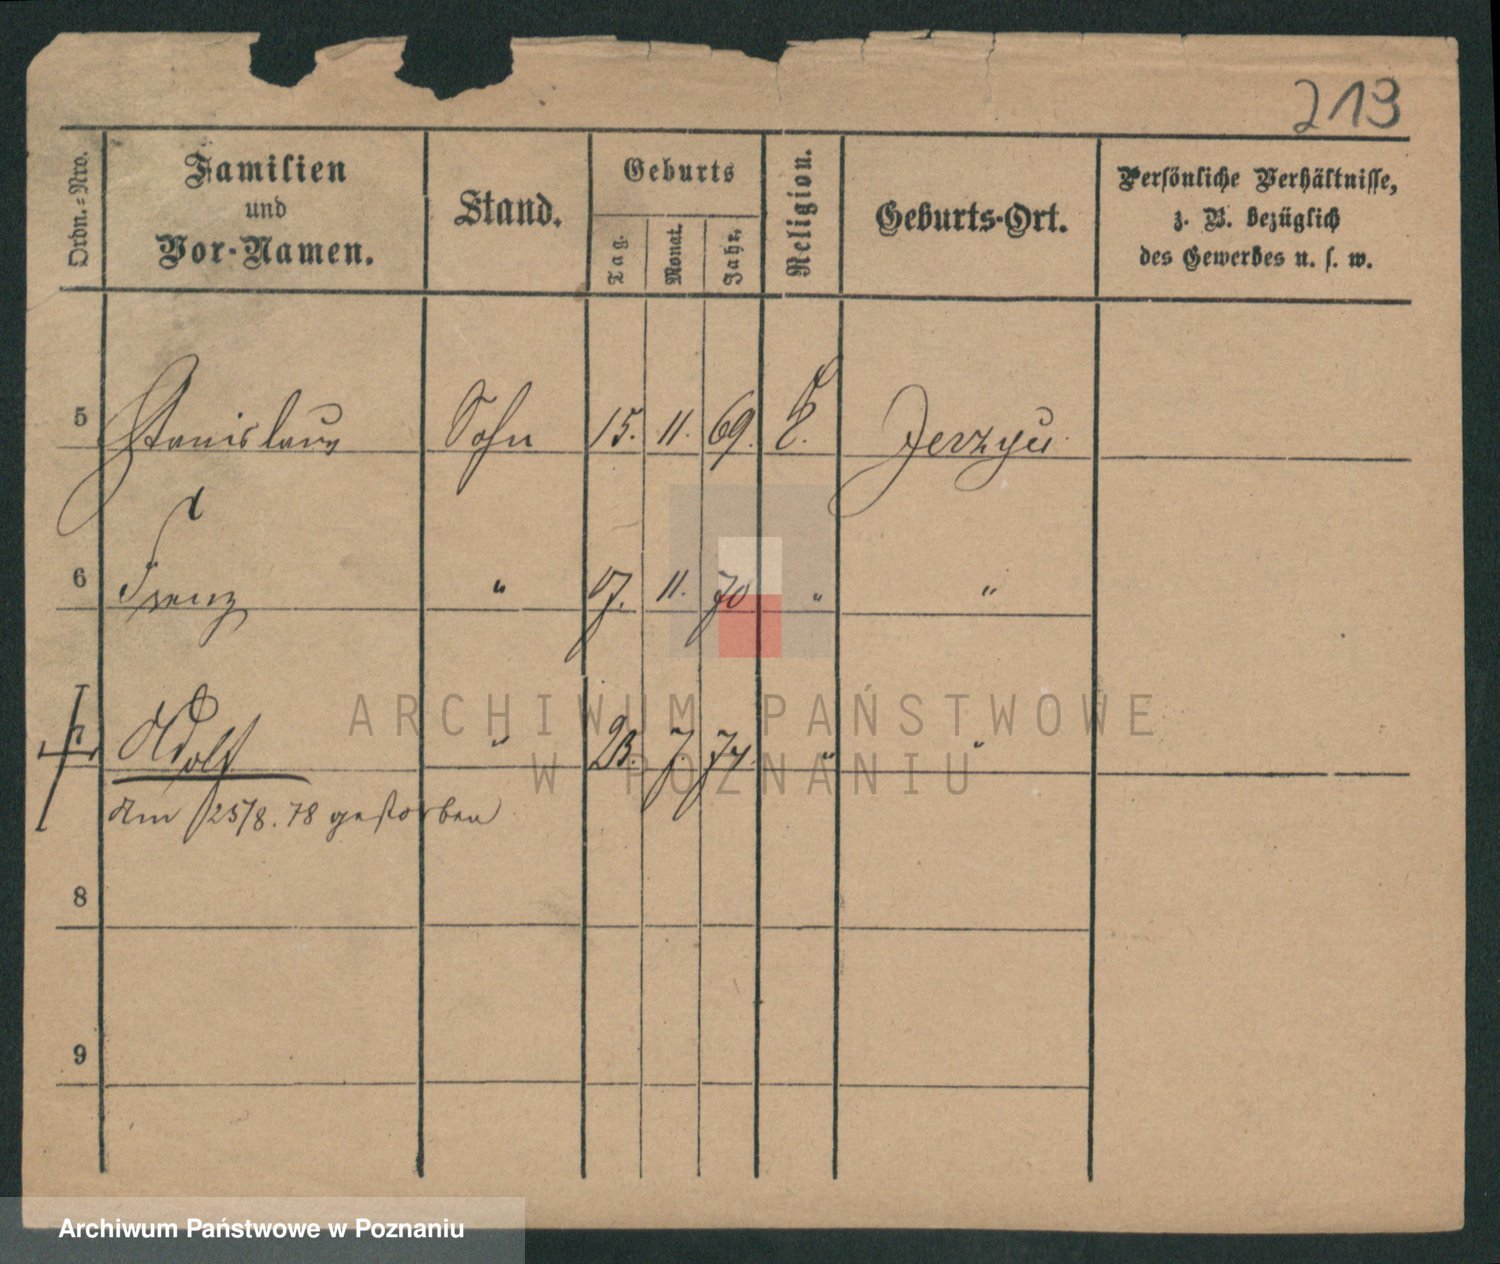 213
Ordn.-Nro.
Familien
und
Vor-Namen.
Stand.
Geburts
Tag.
Monat.
Jahr.
Religion.
Geburts-Ort.
Persönliche Verhältnisse,
z. B. bezüglich
des Gewerbes u. s. w.
5 Stanislaus Sohn 15. 11. 69. Jerzyce
6 Franz " 17. 11. 70 " "
Adolf " 23. 7. 74. " "
Am 25/8. 78 gestorben
8
9
ARCHIWUM PAŃSTWOWE
W POZNANIU
Archiwum Państwowe w Poznaniu